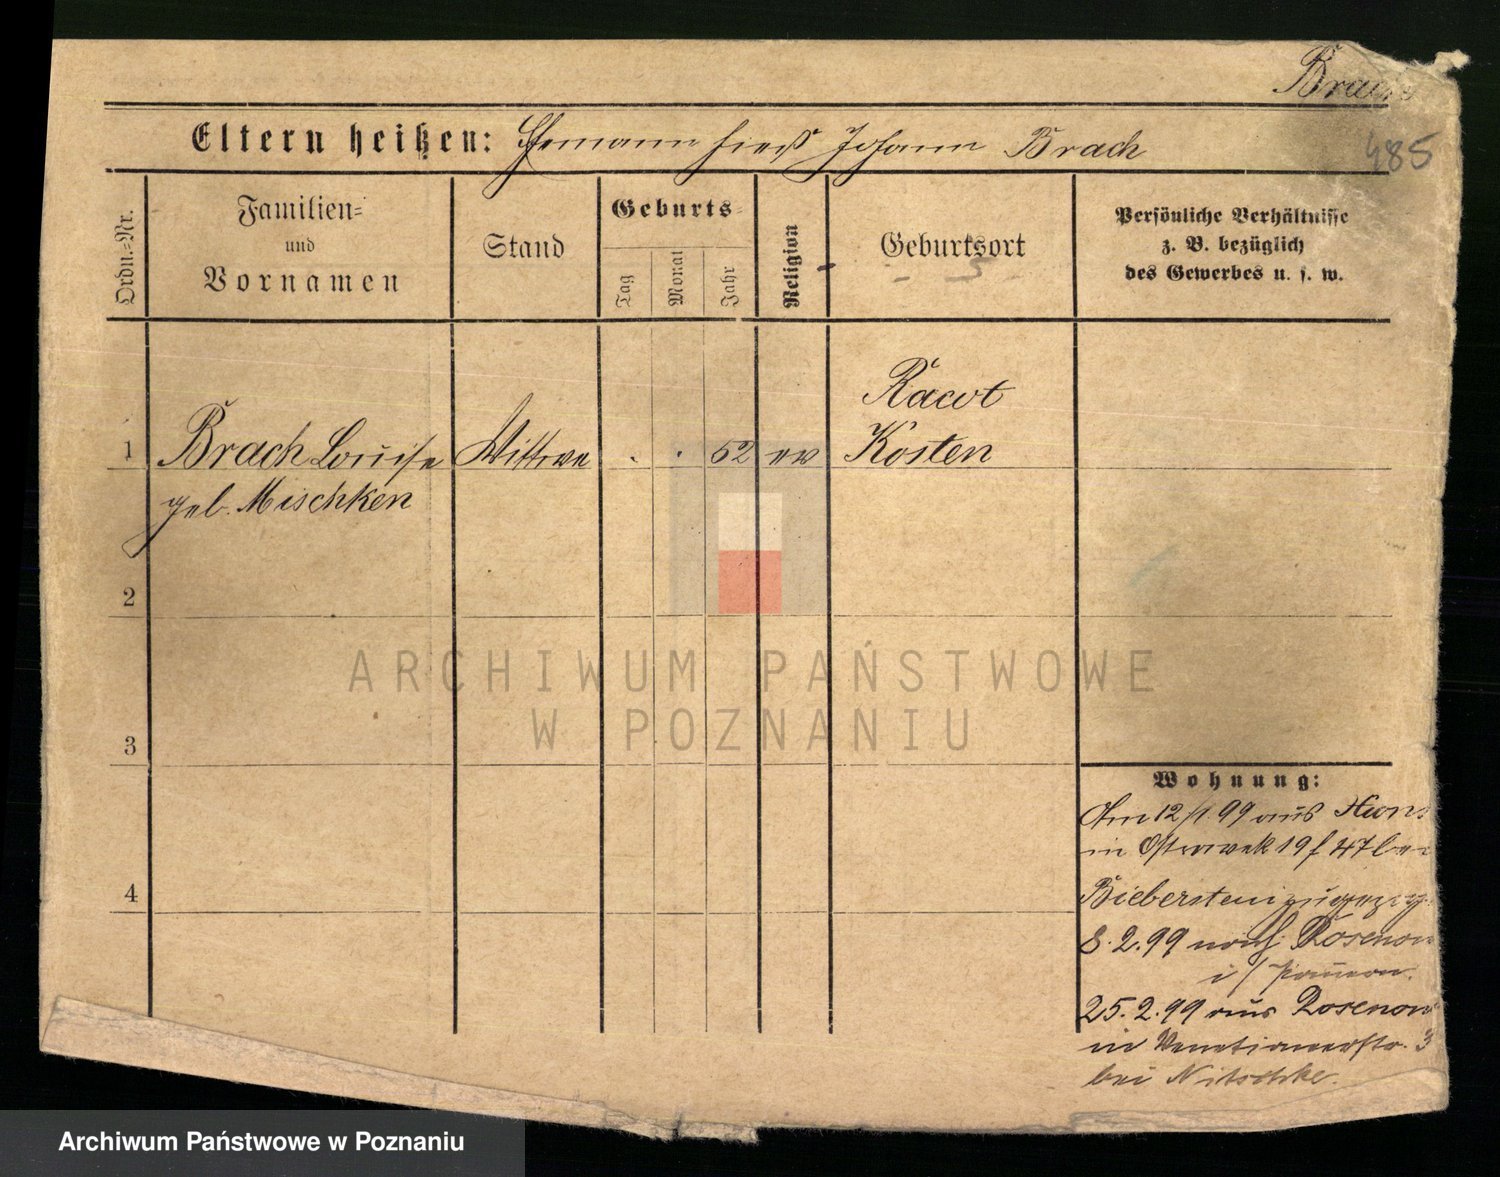 Brach
485
Eltern heißen: Ehemann hieß Johann Brach
Ordn.=Nr.
Familien=
und
Vornamen
Stand
Geburts=
Tag
Monat
Jahr
Religion
Geburtsort
Persönliche Verhältnisse
z. B. bezüglich
des Gewerbes u. s. w.
Racot
1 Brach Louise Wittwe . . 52 ev Kosten
geb. Mischken
2
3
4
Wohnung:
Am 12/1. 99 aus
in Ostrowek 19 f
Bieberstein
8. 2. 99 nach Rosenow
i/ Pomern.
25. 2. 99 aus Rosenow
in Venetianerstr. 3
bei Nitschke.
ARCHIWUM PAŃSTWOWE
W POZNANIU
Archiwum Państwowe w Poznaniu